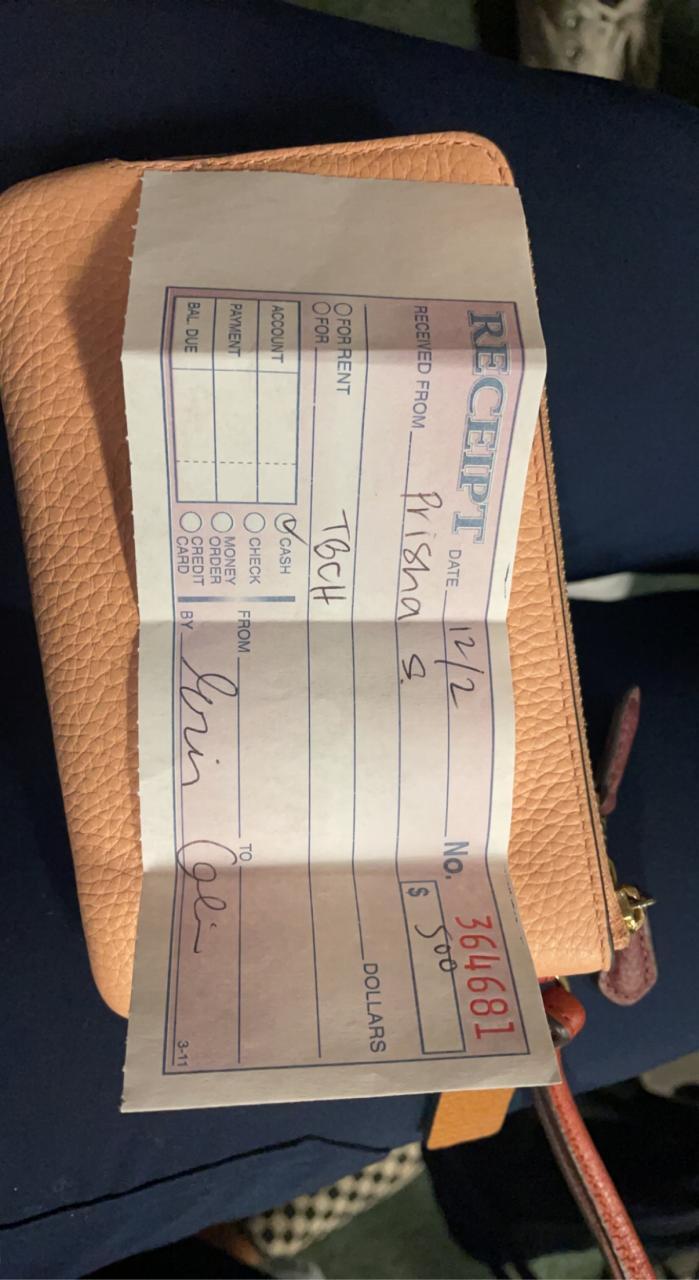 RECEIPT DATE 12/2 No. 364681
RECEIVED FROM Prisha S. $ 500
DOLLARS
FOR RENT
FOR TBCH
ACCOUNT CASH
PAYMENT CHECK FROM TO
MONEY ORDER
BAL. DUE CREDIT CARD BY
3-11